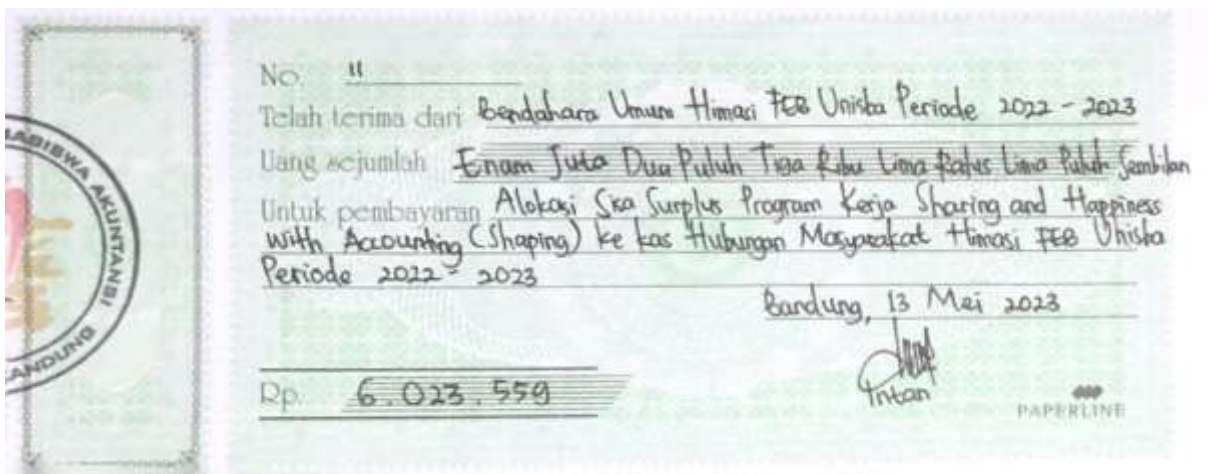 HASISWA AKUNTANSI
ANDUNG
No. 11
Telah terima dari Bendahara Umum Himasi FEB Unisba Periode 2022 - 2023
Uang sejumlah Enam Juta Dua Puluh Tiga Ribu Lima Ratus Lima Puluh Sembilan
Untuk pembayaran Alokasi Sisa Surplus Program Kerja Sharing and Happiness
With Accounting (Shaping) ke kas Hubungan Masyarakat Himasi FEB Unisba
Periode 2022 - 2023
Bandung, 13 Mei 2023
Intan
Rp. 6.023.559
PAPERLINE